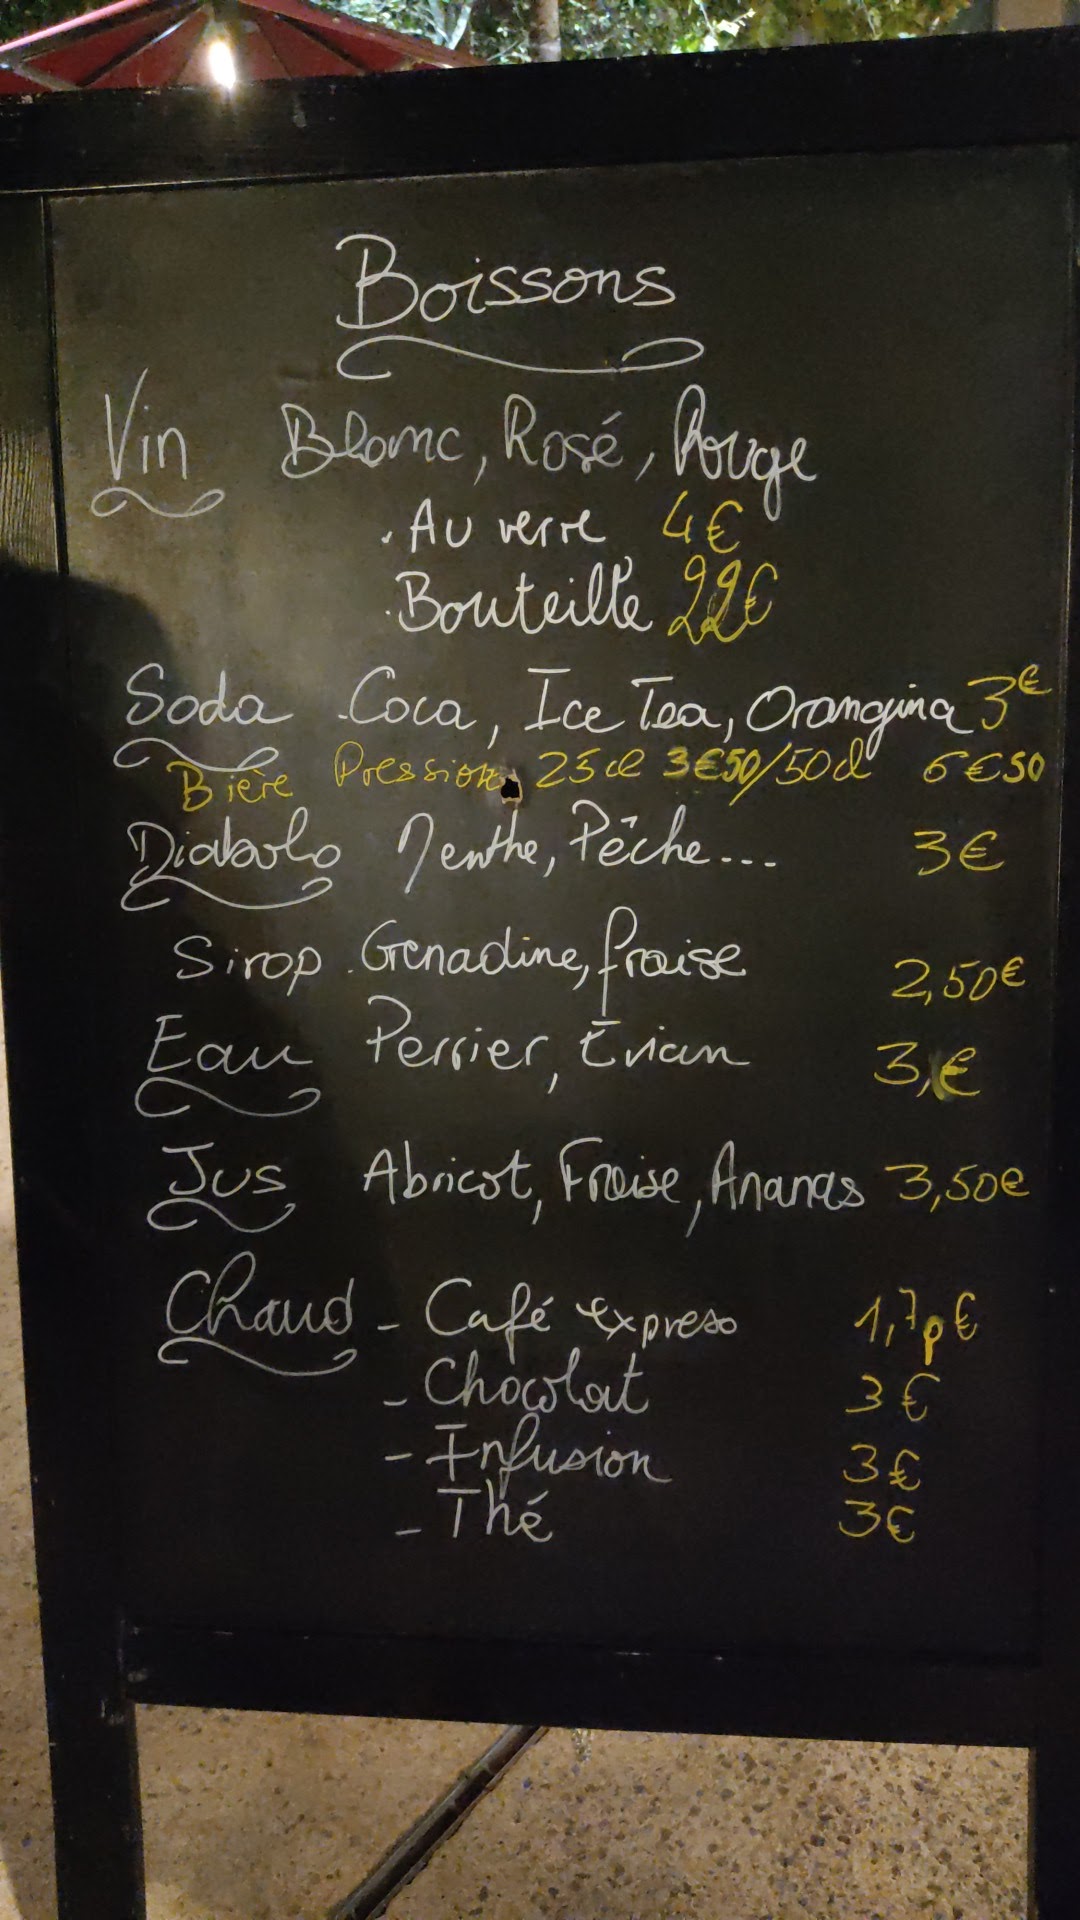 Boissons
Vin Blanc, Rosé, Rouge
. Au verre 4€
. Bouteille 22€
Soda . Coca, Ice Tea, Orangina 3€
Bière Pression 25cl 3€50/50cl 6€50
Diabolo Menthe, Pêche... 3€
Sirop . Grenadine, fraise 2,50€
Eau Perrier, Evian 3,€
Jus Abricot, Fraise, Ananas 3,50€
Chaud - Café expreso 1,70€
- Chocolat 3€
- Infusion 3€
- Thé 3€